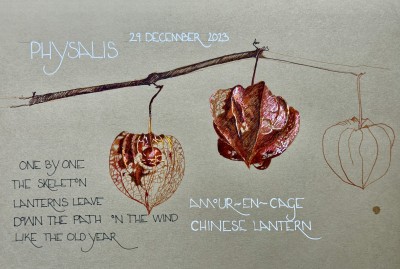 PHYSALIS
29 DECEMBER 2023
ONE BY ONE
THE SKELETON
LANTERNS LEAVE
DOWN THE PATH ON THE WIND
LIKE THE OLD YEAR
AMOUR-EN-CAGE
CHINESE LANTERN